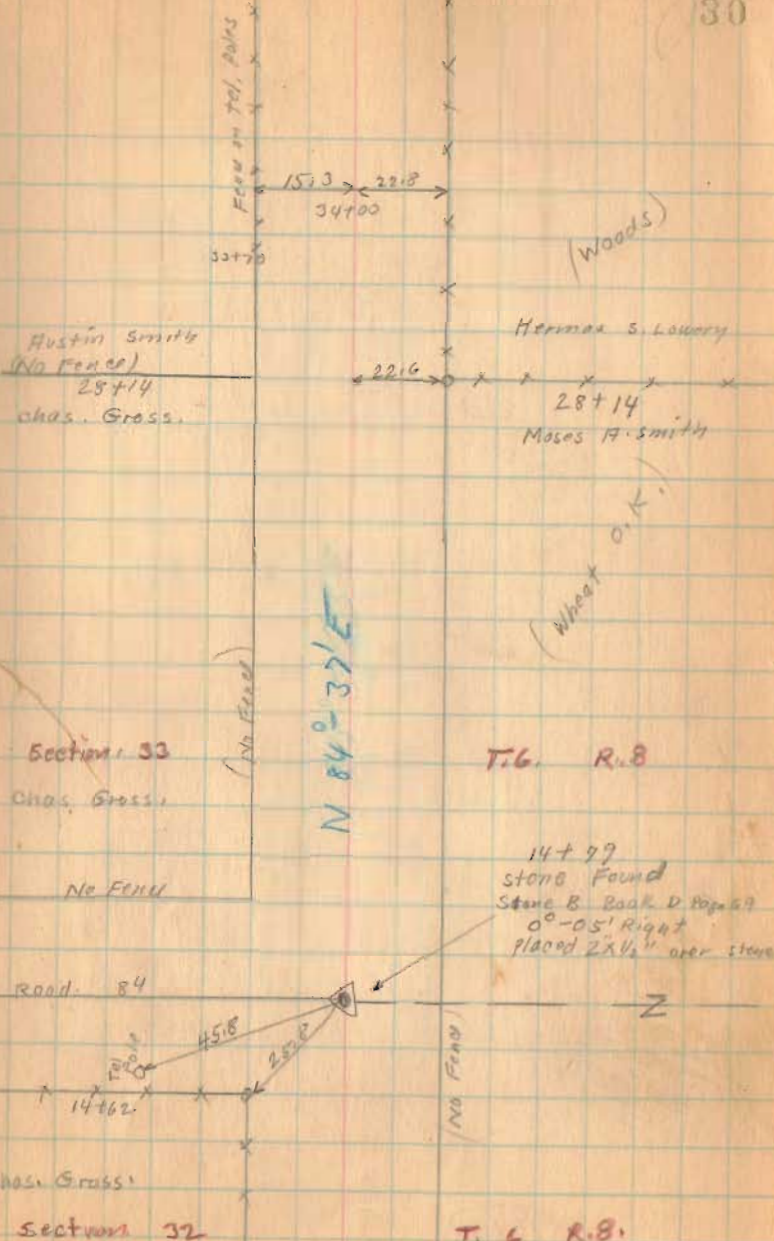 30
Fence on Tel. Poles
15.3 22.8
34+00
33+70
(Woods)
Austin Smith
(No Fence)
28+14
Chas. Gross.
22.6
Herman S. Lowery
28+14
Moses A. Smith
(Wheat O.K.)
(No Fence)
N 84°-37' E
Section 33
T.6. R.8
Chas. Gross.
No Fence
14+79
Stone Found
Stone B Book D Page 59
0°-05' Right
Placed 2"x1/2" over stone
Road 84
N
Tel Pole
45.8
14+62.
(No Fence)
Chas. Gross.
Section 32
T. 6 R.8.